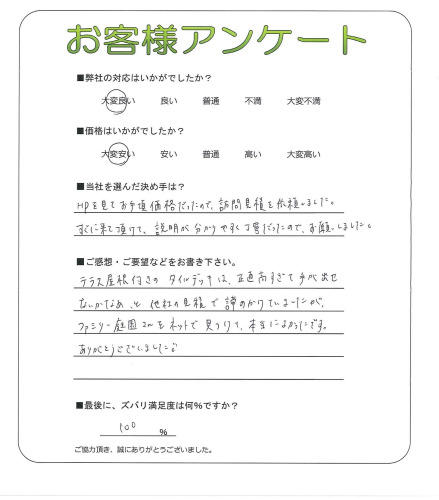 お客様アンケート
■弊社の対応はいかがでしたか？
大変良い 良い 普通 不満 大変不満
■価格はいかがでしたか？
大変安い 安い 普通 高い 大変高い
■当社を選んだ決め手は？
HPを見てお手頃価格だったので、訪問見積を依頼しました。
すぐに来て頂けて、説明が分かりやすく丁寧だったので、お願いしました。
■ご感想・ご要望などをお書き下さい。
テラス屋根付きのタイルデッキは、正直高すぎて手が出せ
ないかなあ、と他社の見積で諦めかけていましたが、
ファミリー庭園さんをネットで見つけて、本当によかったです。
ありがとうございました。
■最後に、ズバリ満足度は何％ですか？
100 ％
ご協力頂き、誠にありがとうございました。